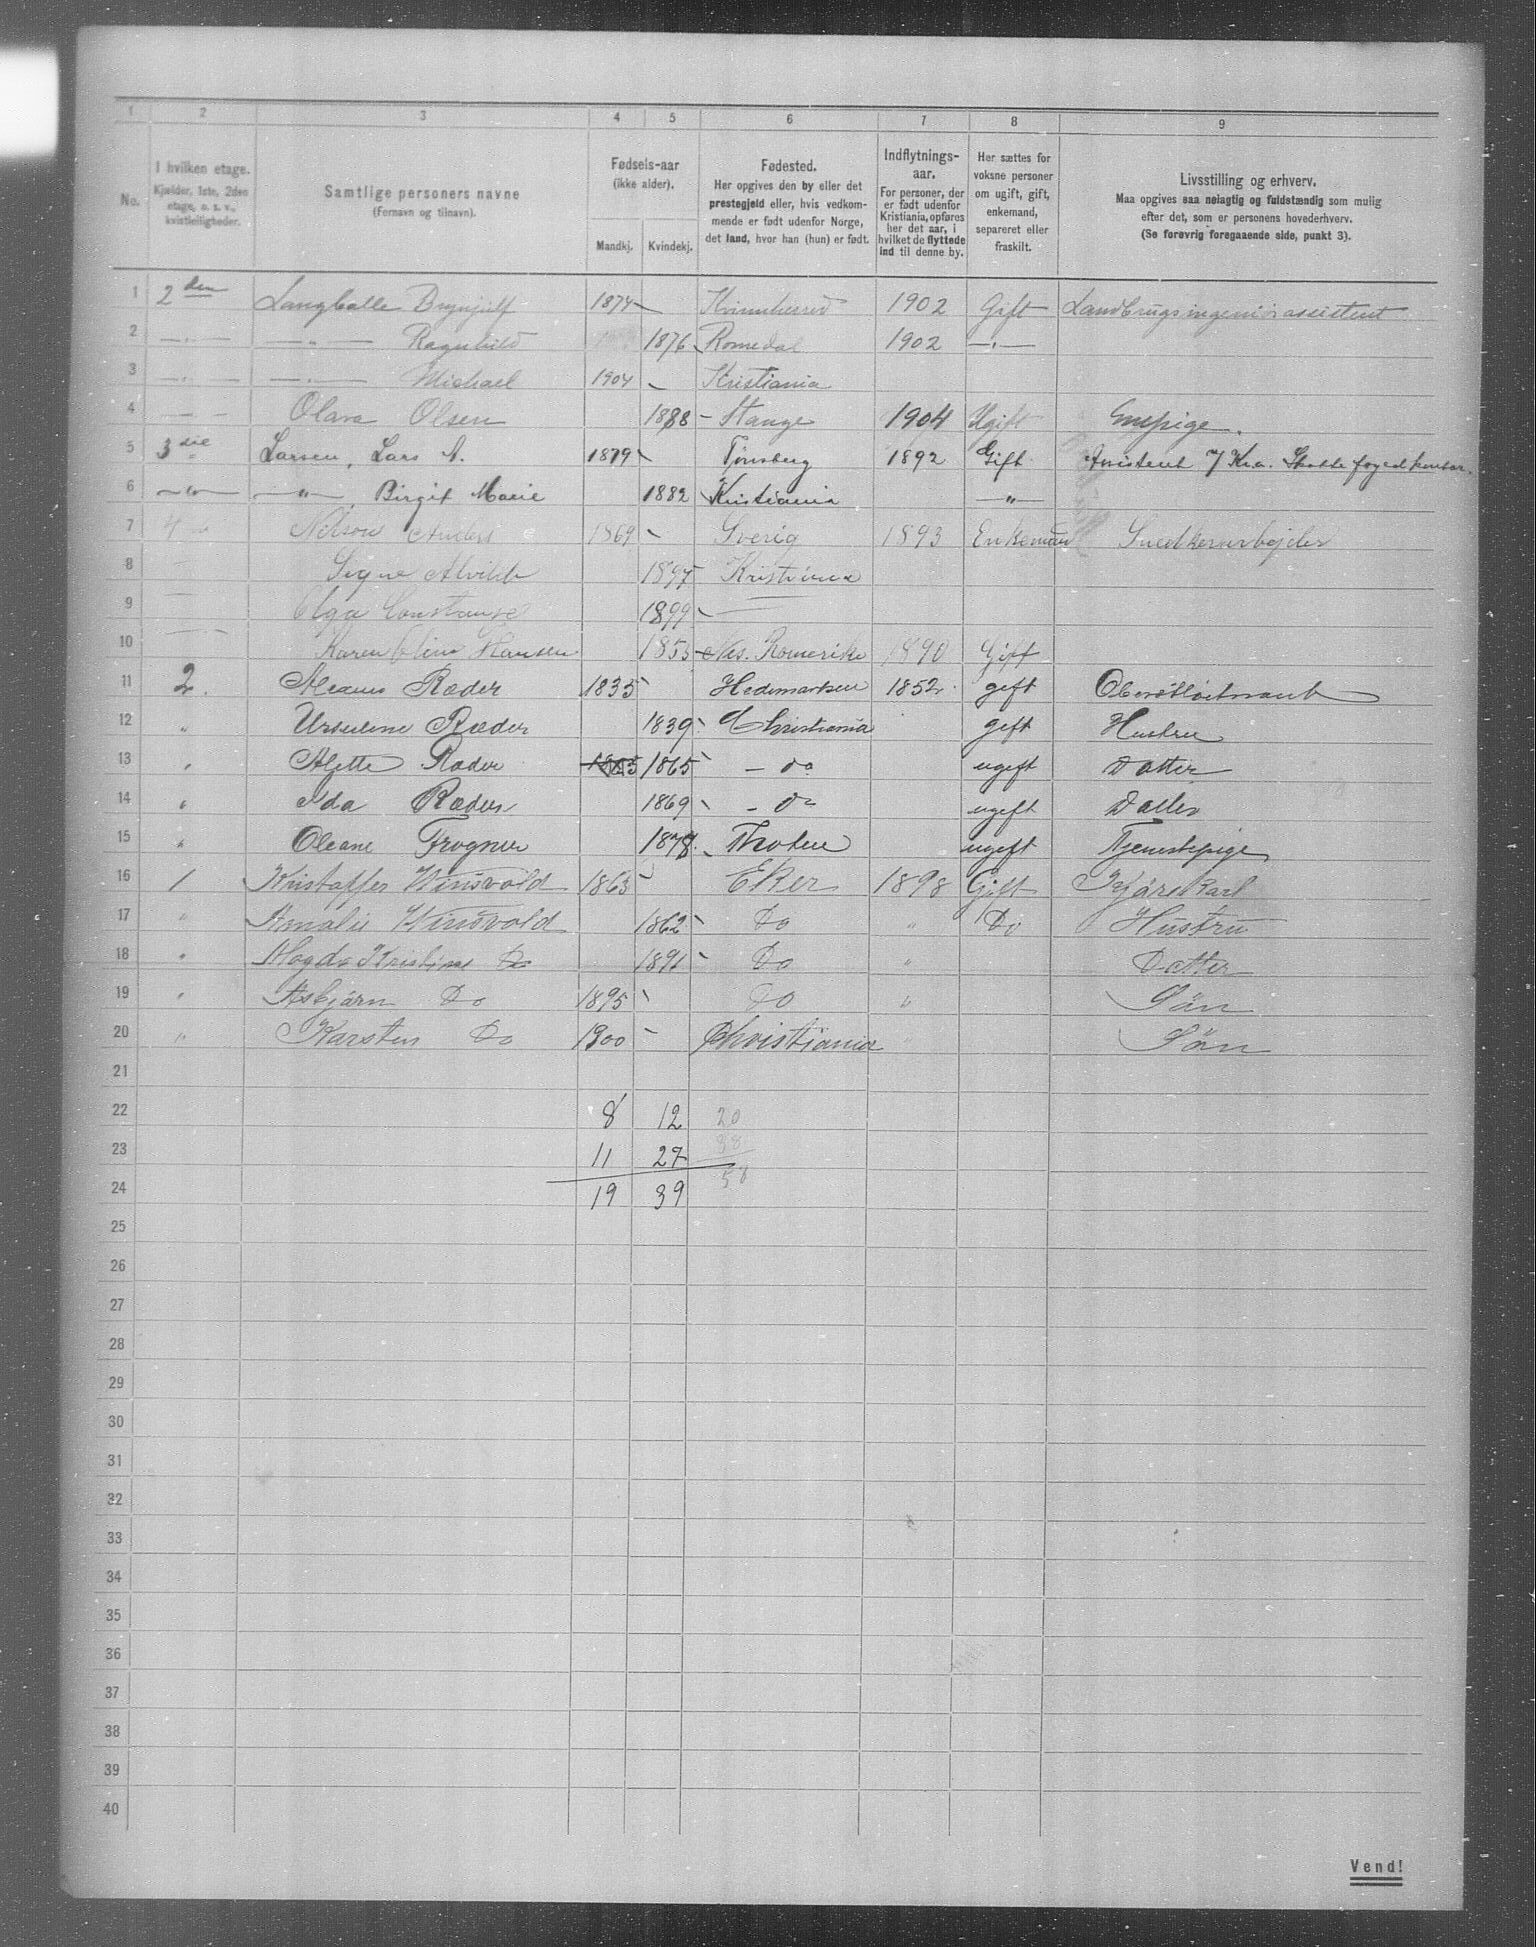 1 2 3 4 5 6 7 8 9
No.
I hvilken etage.
Kjælder, 1ste, 2den
etage, o. s. v.,
kvistleiligheder.
Samtlige personers navne
(Fornavn og tilnavn).
Fødsels-aar
(ikke alder).
Mandkj. Kvindekj.
Fødested.
Her opgives den by eller det
prestegjeld eller, hvis vedkom-
mende er født udenfor Norge,
det land, hvor han (hun) er født.
Indflytnings-
aar.
For personer, der
er født udenfor
Kristiania, opføres
her det aar, i
hvilket de flyttede
ind til denne by.
Her sættes for
voksne personer
om ugift, gift,
enkemand,
separeret eller
fraskilt.
Livsstilling og erhverv.
Maa opgives saa nøiagtig og fuldstændig som mulig
efter det, som er personens hovederhverv.
(Se forøvrig foregaaende side, punkt 3).
1 2den Langballe Brynjulf 1874 - Kvinnherred 1902 Gift Landbrugsingeniørassistent
2 -„- -„- Ragnhild 1876 Romedal 1902 -„-
3 -„- -„- Michael 1904 - Kristiania
4 - - Olava Olsen 1888 - Stange 1904 Ugift Enepige.
5 3die Larsen, Lars A. 1879 - Tønsberg 1892 Gift Assistent v/ Kra. Skattefogedkontor.
6 -„- -„-, Birgit Marie 1882 Kristiania -„-
7 4 Nelson Anders 1869 - Sverig 1893 Enkemand Snedkerarbejder
8 - Signe Alvilde 1897 - Kristiania
9 - Olga Constanse 1899 - -
10 - Karen Oline Hansen 1853 - Nes. Romerike 1890 Gift
11 2. Ræder 1835 Hedemarken 1852 gift Oberstløitnant
12 „ Ursuline Ræder 1839 - Christiania gift Hustru
13 „ Alette Ræder 1865 - do ugift Datter
14 „ Ida Ræder 1869 - do ugift Datter
15 „ Oleane Frogner 1878 - Thoten ugift Tjenestepige
16 1 Kristoffer Winsvold 1863 - Eker 1898 Gift Kjørekarl
17 „ Amalie Winsvold 1862 - Do „ Do Hustru
18 „ Magda Kristine Do 1891 - Do „ Datter
19 „ Asbjørn Do 1895 - Do „ Søn
20 „ Karsten Do 1900 - Christiania Søn
21
22 8 12 20
23 11 27 38
24 19 39 58
25
26
27
28
29
30
31
32
33
34
35
36
37
38
39
40
Vend!